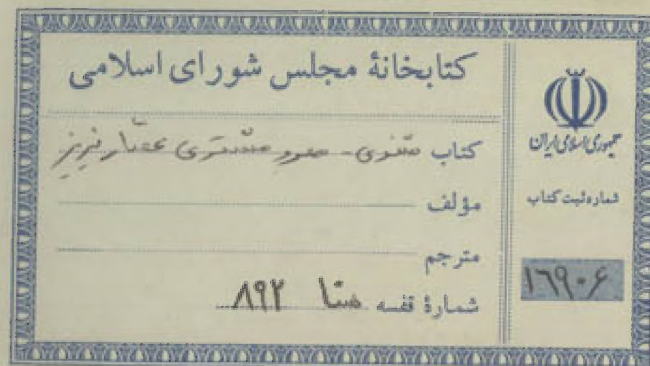 کتابخانهٔ مجلس شورای اسلامی
کتاب مثنوی - مهرو مشتری عصّار تبریز
مؤلف
مترجم
شمارهٔ قفسه ۸۹۲
جمهوری اسلامی ایران
شماره ثبت کتاب
۱۶۹۰۶